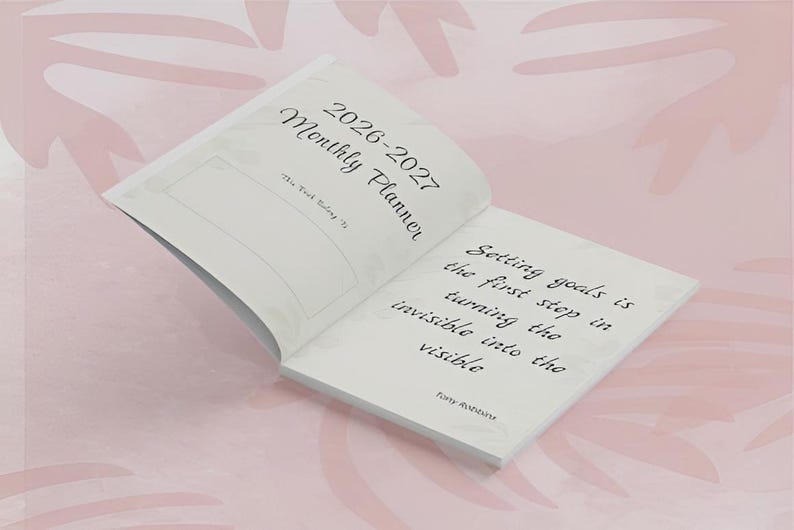 2026-2027
Monthly Planner
This Book Belong To
Setting goals is
the first step in
turning the
invisible into the
visible
Tony Robbins